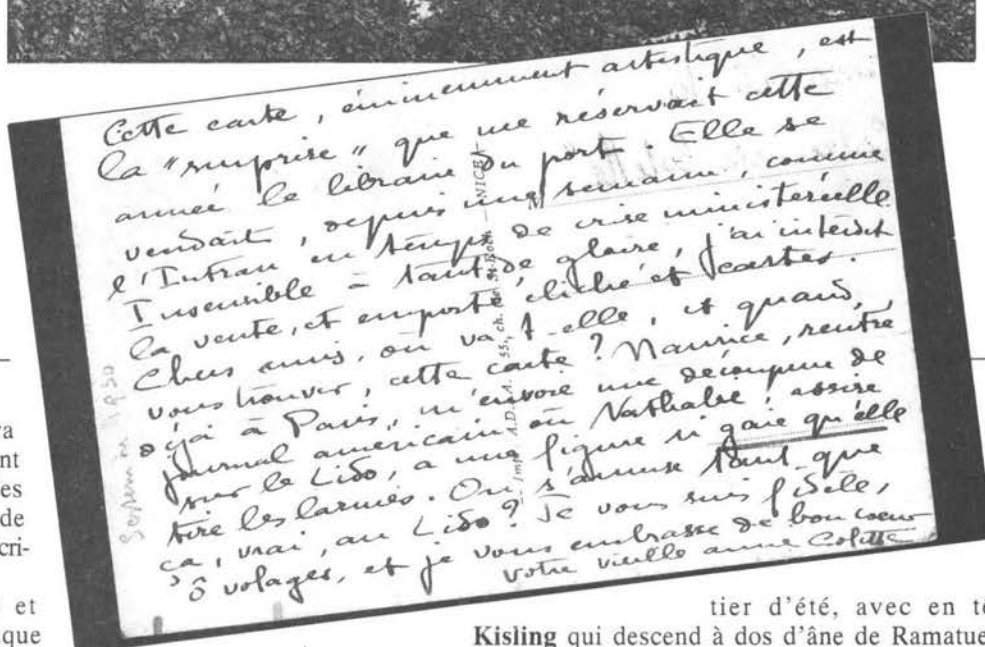 Cette carte, éminemment artistique, est
la "surprise" que me réservait cette
année le libraire du port. Elle se
vendait, depuis une semaine, comme
l'Intran en temps de crise ministérielle
Insensible à tant de gloire, j'ai interdit
la vente, et emporté cliché et cartes.
Chers amis, où va-t-elle, et quand,
vous trouver, cette carte? Maurice, rentré
déjà à Paris, m'envoie une découpure de
journal américain où Nathalie, assise
sur le Lido, a une figure si gaie qu'elle
tire les larmes. On s'amuse tant que
ça, vrai, au Lido? Je vous suis fidèle,
ô volages, et je vous embrasse de bon cœur
votre vieille amie Colette
Septembre 1930
Imp. A.D.I.A. 55, ch. de St-Roch — NICE
va
nt
es
de
cri-
et
que
tier d'été, avec en tê
Kisling qui descend à dos d'âne de Ramatue